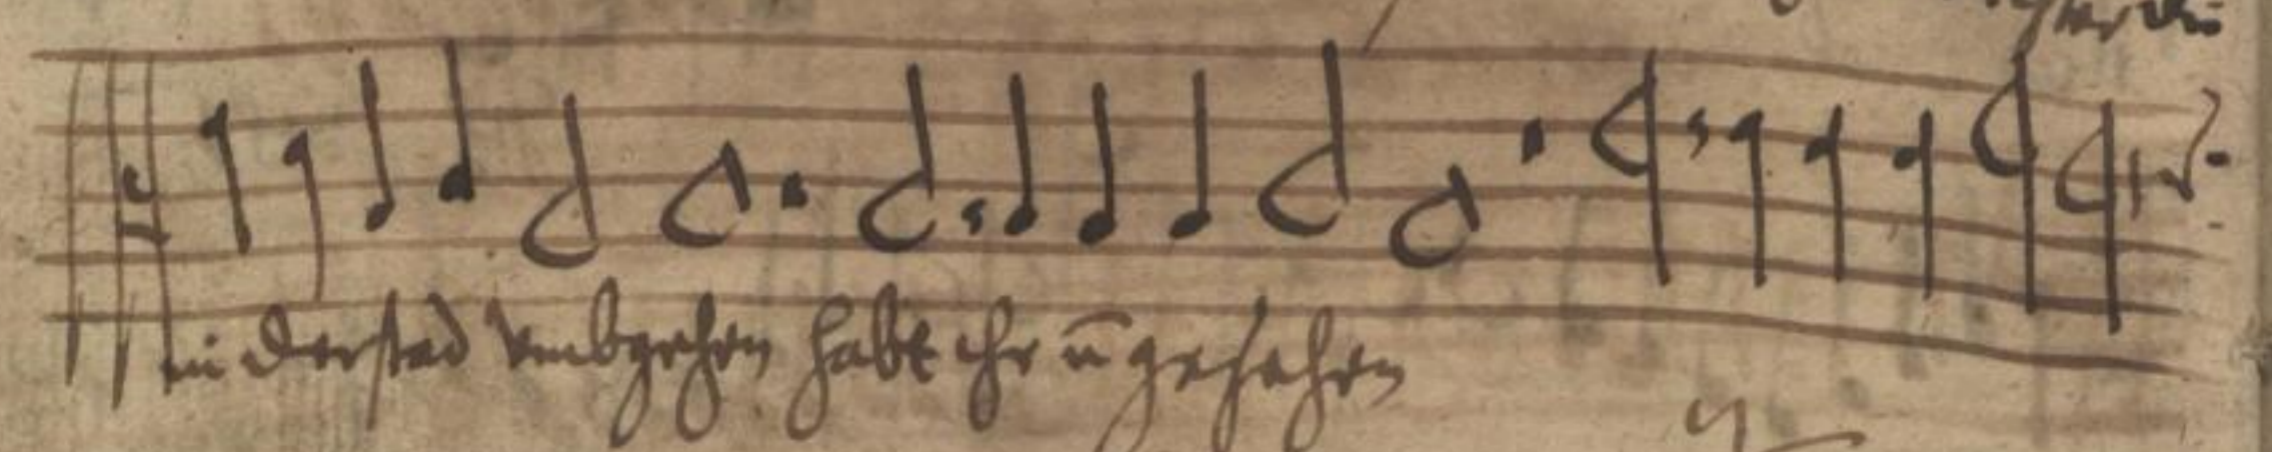 in der stad vmbgehen habt ihr nit gesehen